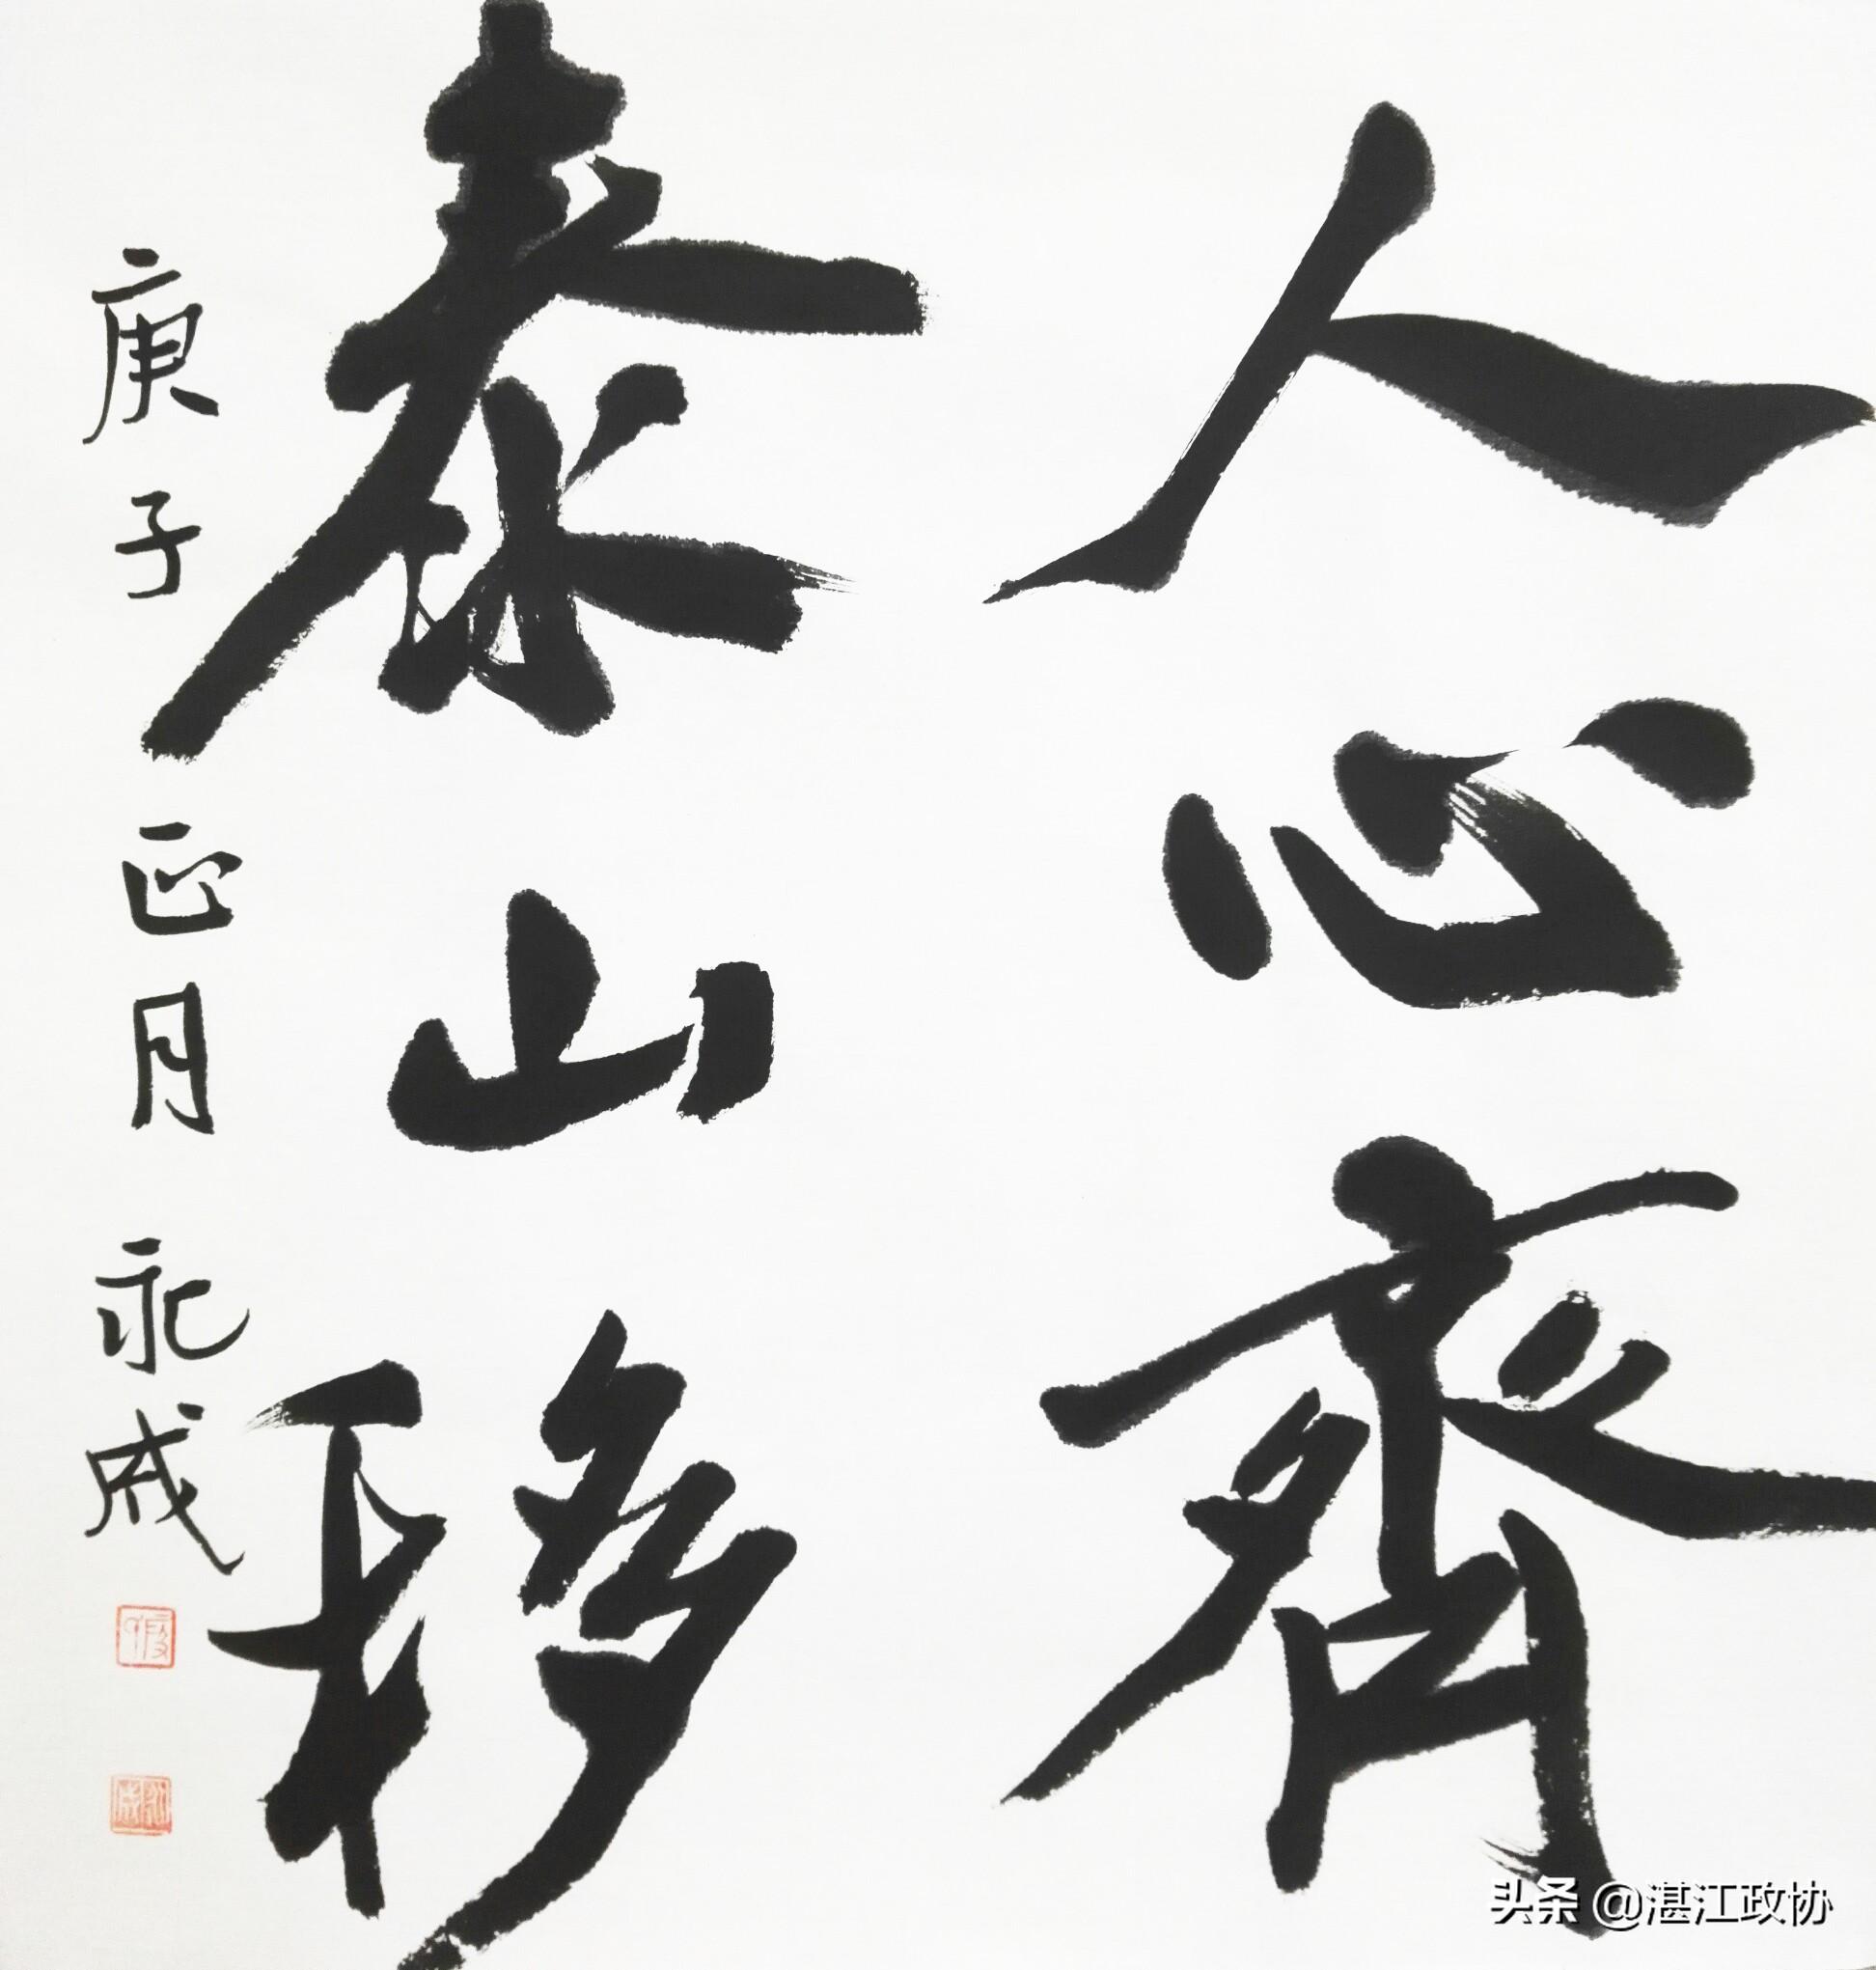 人心齊
泰山移
庚子正月 永成
头条 @湛江政协